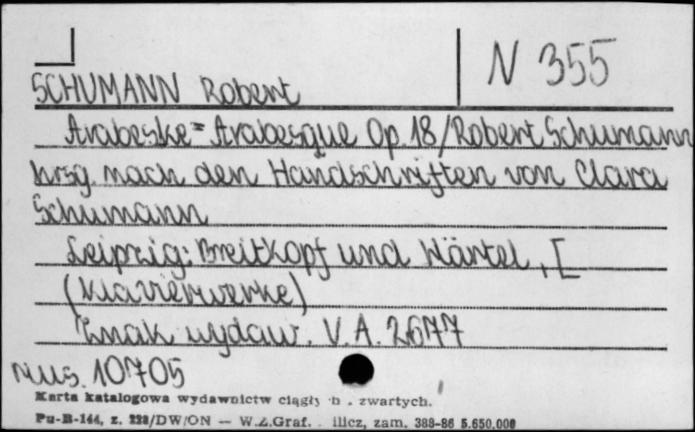 N 355
SCHUMANN Robert
Arabeske = Arabesque Op. 18 / Robert Schumann
hrsg. nach den Handschriften von Clara
Schumann
Leipzig : Breitkopf und Härtel, [
(Klavierwerke)
Znak wydaw. V. A. 2677
mus. 10705
Karta katalogowa wydawnictw ciągły h . zwartych.
Pu-B-144, z. 222/DW/ON — W.Z.Graf. zam. 388-86 5.650.000